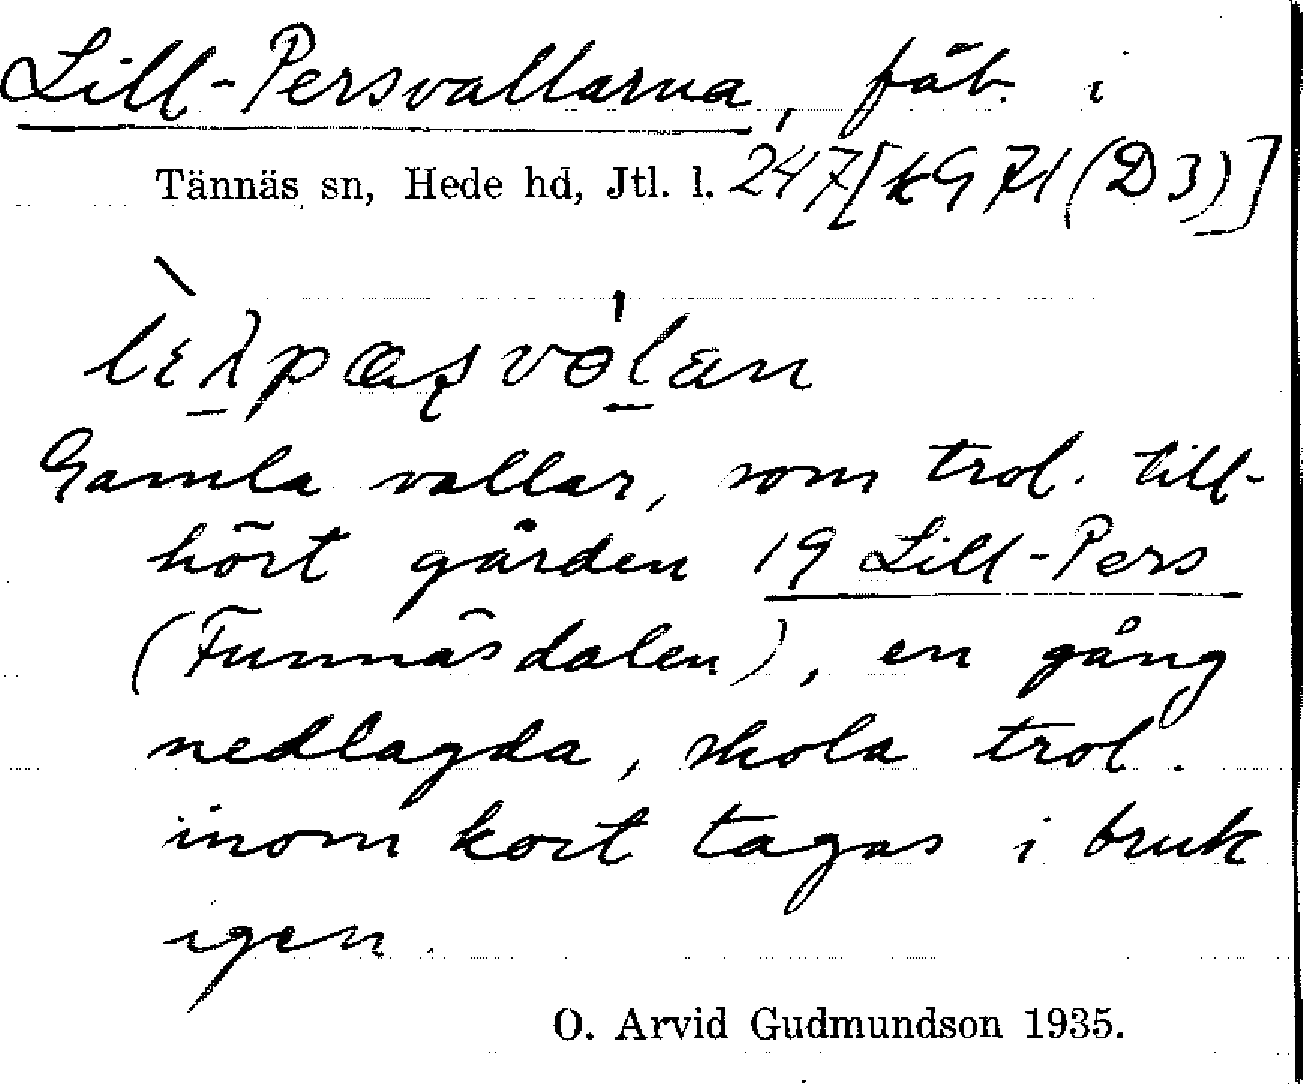 Lill-Persvallarna, fäb. i
Tännäs sn, Hede hd, Jtl. l. 247 [k971 (D3)]
Gamla vallar, som trol. till-
hört gården 19 Lill-Pers
(Funnäsdalen), en gång
nedlagda, skola trol.
inom kort tagas i bruk
igen.
O. Arvid Gudmundson 1935.